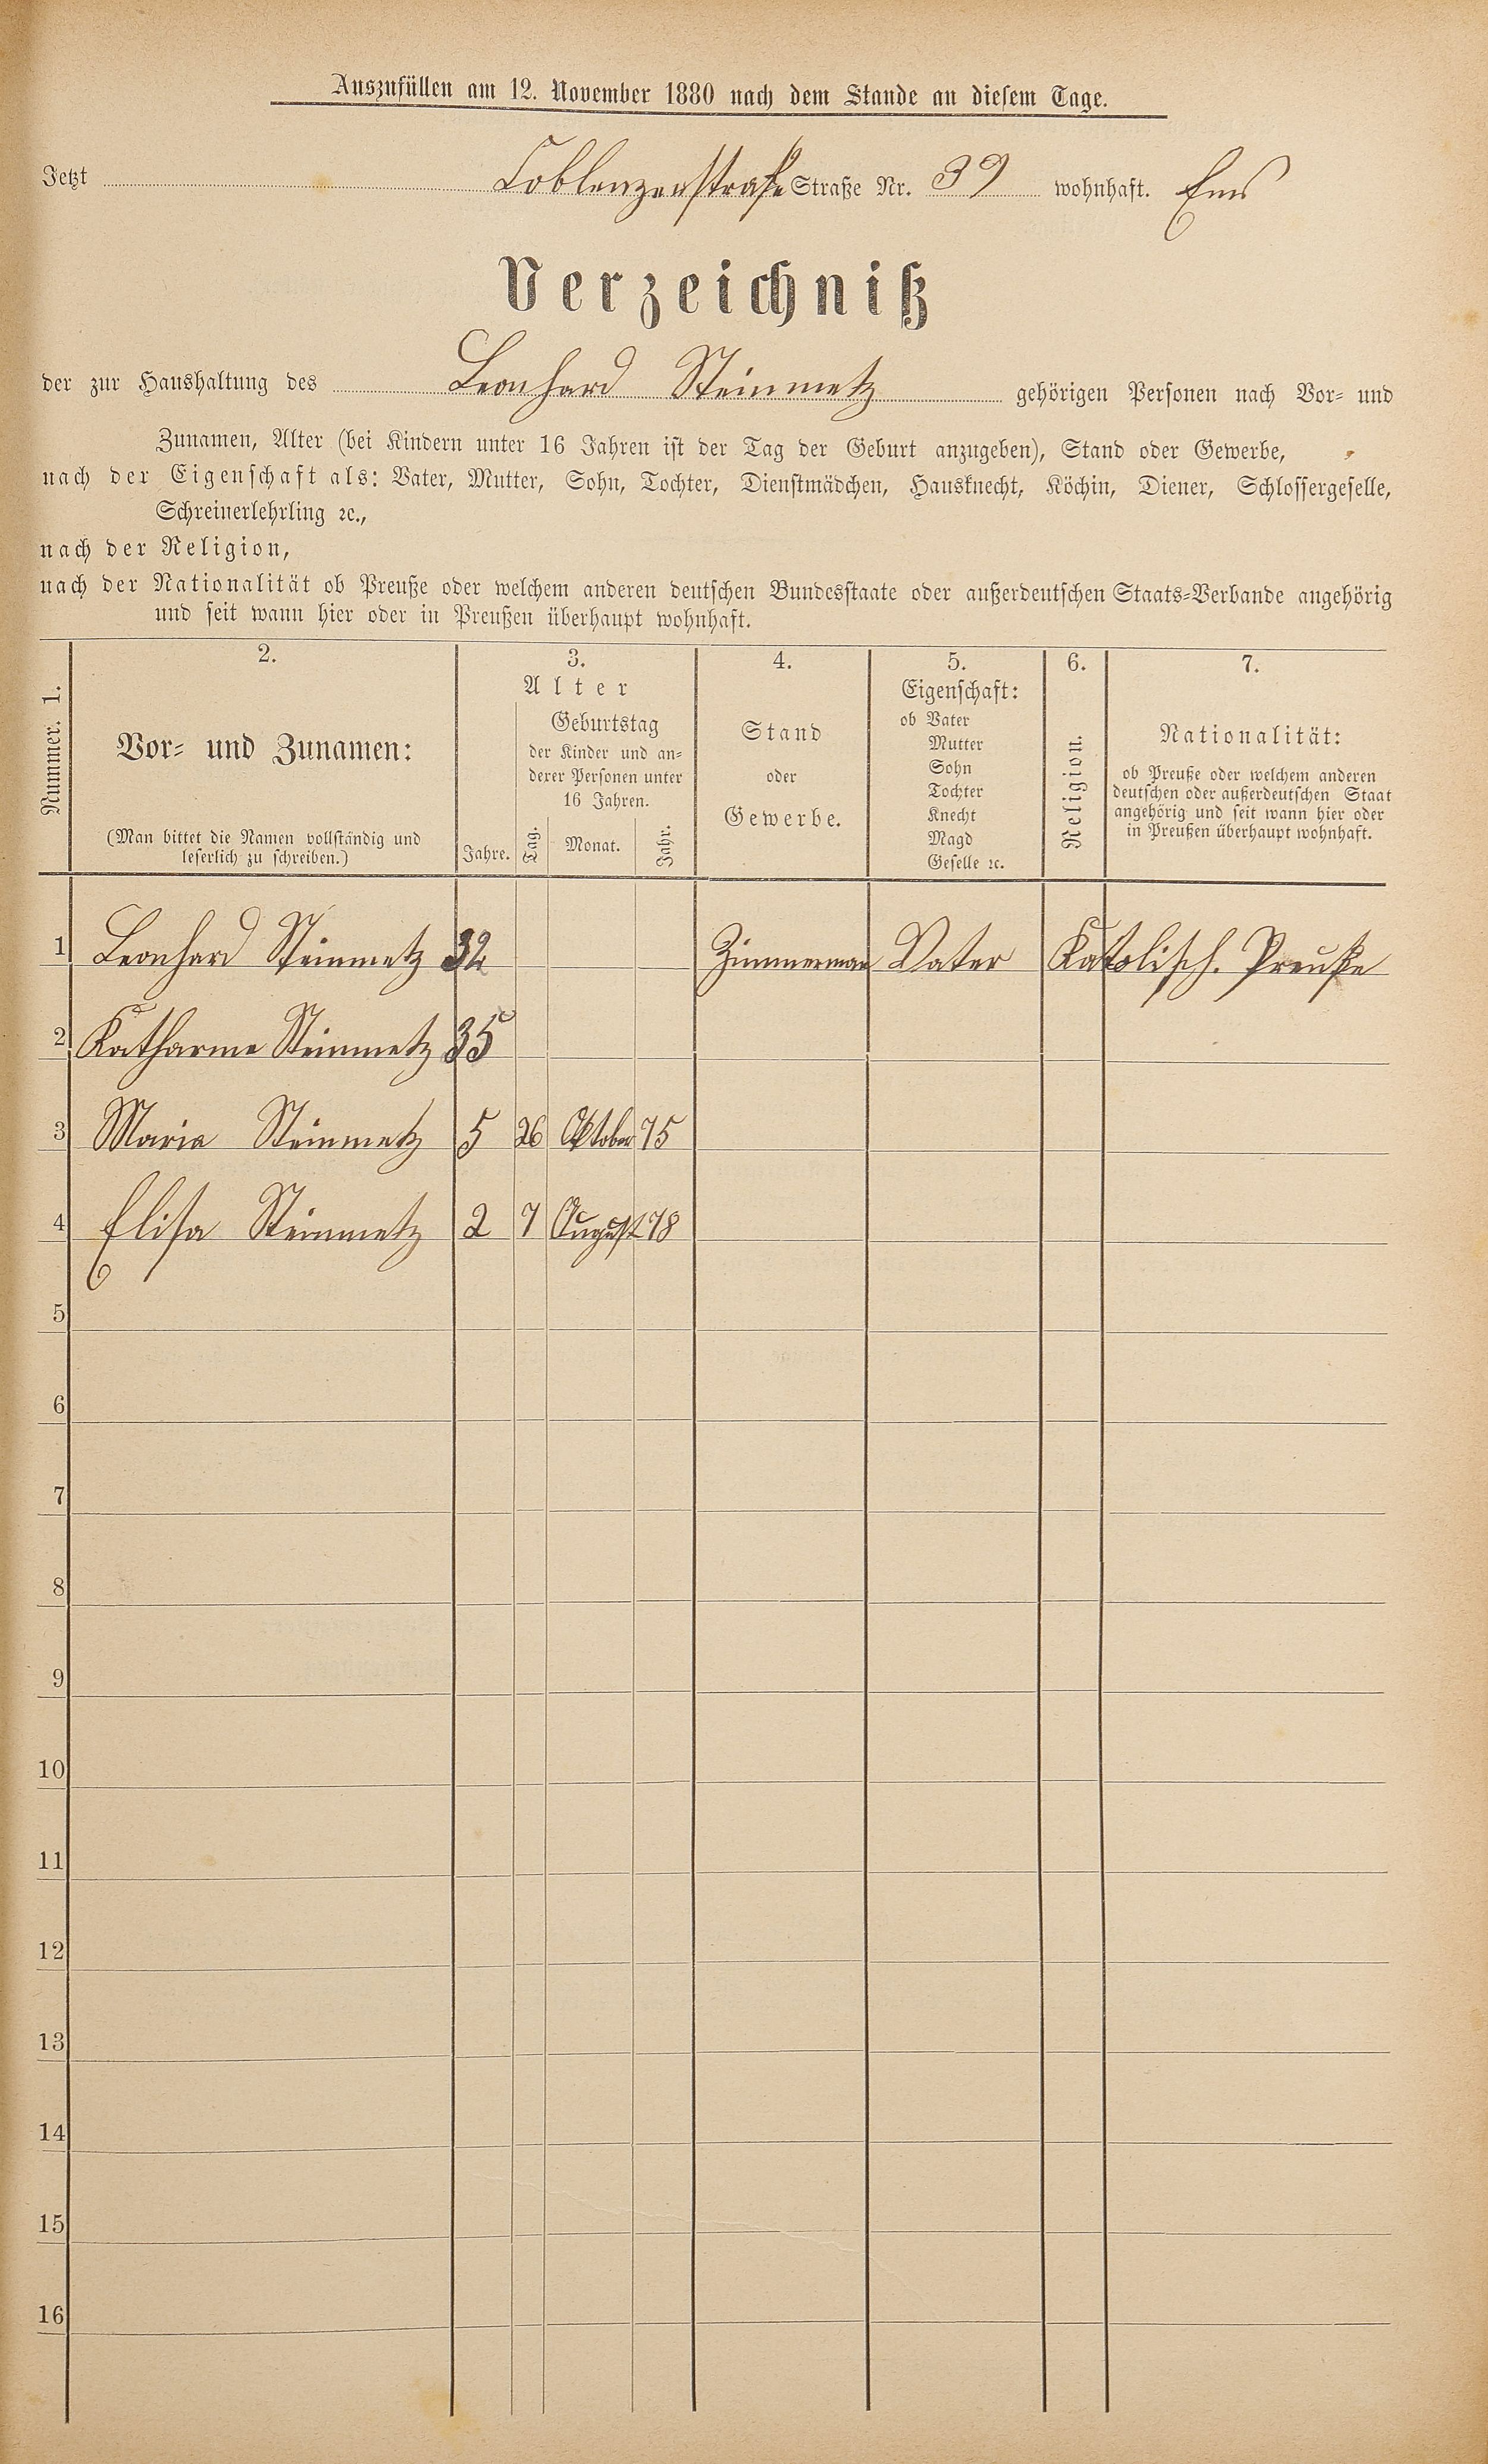 Auszufüllen am 12. November 1880 nach dem Stande an diesem Tage.
Jetzt Coblenzerstraße Straße Nr. 39 wohnhaft. Ems
Verzeichniß
der zur Haushaltung des Leonhard Steinmetz gehörigen Personen nach Vor- und
Zunamen, Alter (bei Kindern unter 16 Jahren ist der Tag der Geburt anzugeben), Stand oder Gewerbe,
nach der Eigenschaft als: Vater, Mutter, Sohn, Tochter, Dienstmädchen, Hausknecht, Köchin, Diener, Schlossergeselle,
Schreinerlehrling ꝛc.,
nach der Religion,
nach der Nationalität ob Preuße oder welchem anderen deutschen Bundesstaate oder außerdeutschen Staats-Verbande angehörig
und seit wann hier oder in Preußen überhaupt wohnhaft.
Nummer. 1.
2.
Vor- und Zunamen:
(Man bittet die Namen vollständig und
leserlich zu schreiben.)
3.
Alter
Jahre.
Geburtstag
der Kinder und an-
derer Personen unter
16 Jahren.
Tag.
Monat.
Jahr.
4.
Stand
oder
Gewerbe.
5.
Eigenschaft:
ob Vater
Mutter
Sohn
Tochter
Knecht
Magd
Geselle ꝛc.
6.
Religion.
7.
Nationalität:
ob Preuße oder welchem anderen
deutschen oder außerdeutschen Staat
angehörig und seit wann hier oder
in Preußen überhaupt wohnhaft.
1 Leonhard Steinmetz 32 Zimmerman Vater Katolisch. Preuße
2 Katharine Steinmetz 35
3 Maria Steinmetz 5 26 Oktober 75
4 Elisa Steinmetz 2 7 August 78
5
6
7
8
9
10
11
12
13
14
15
16